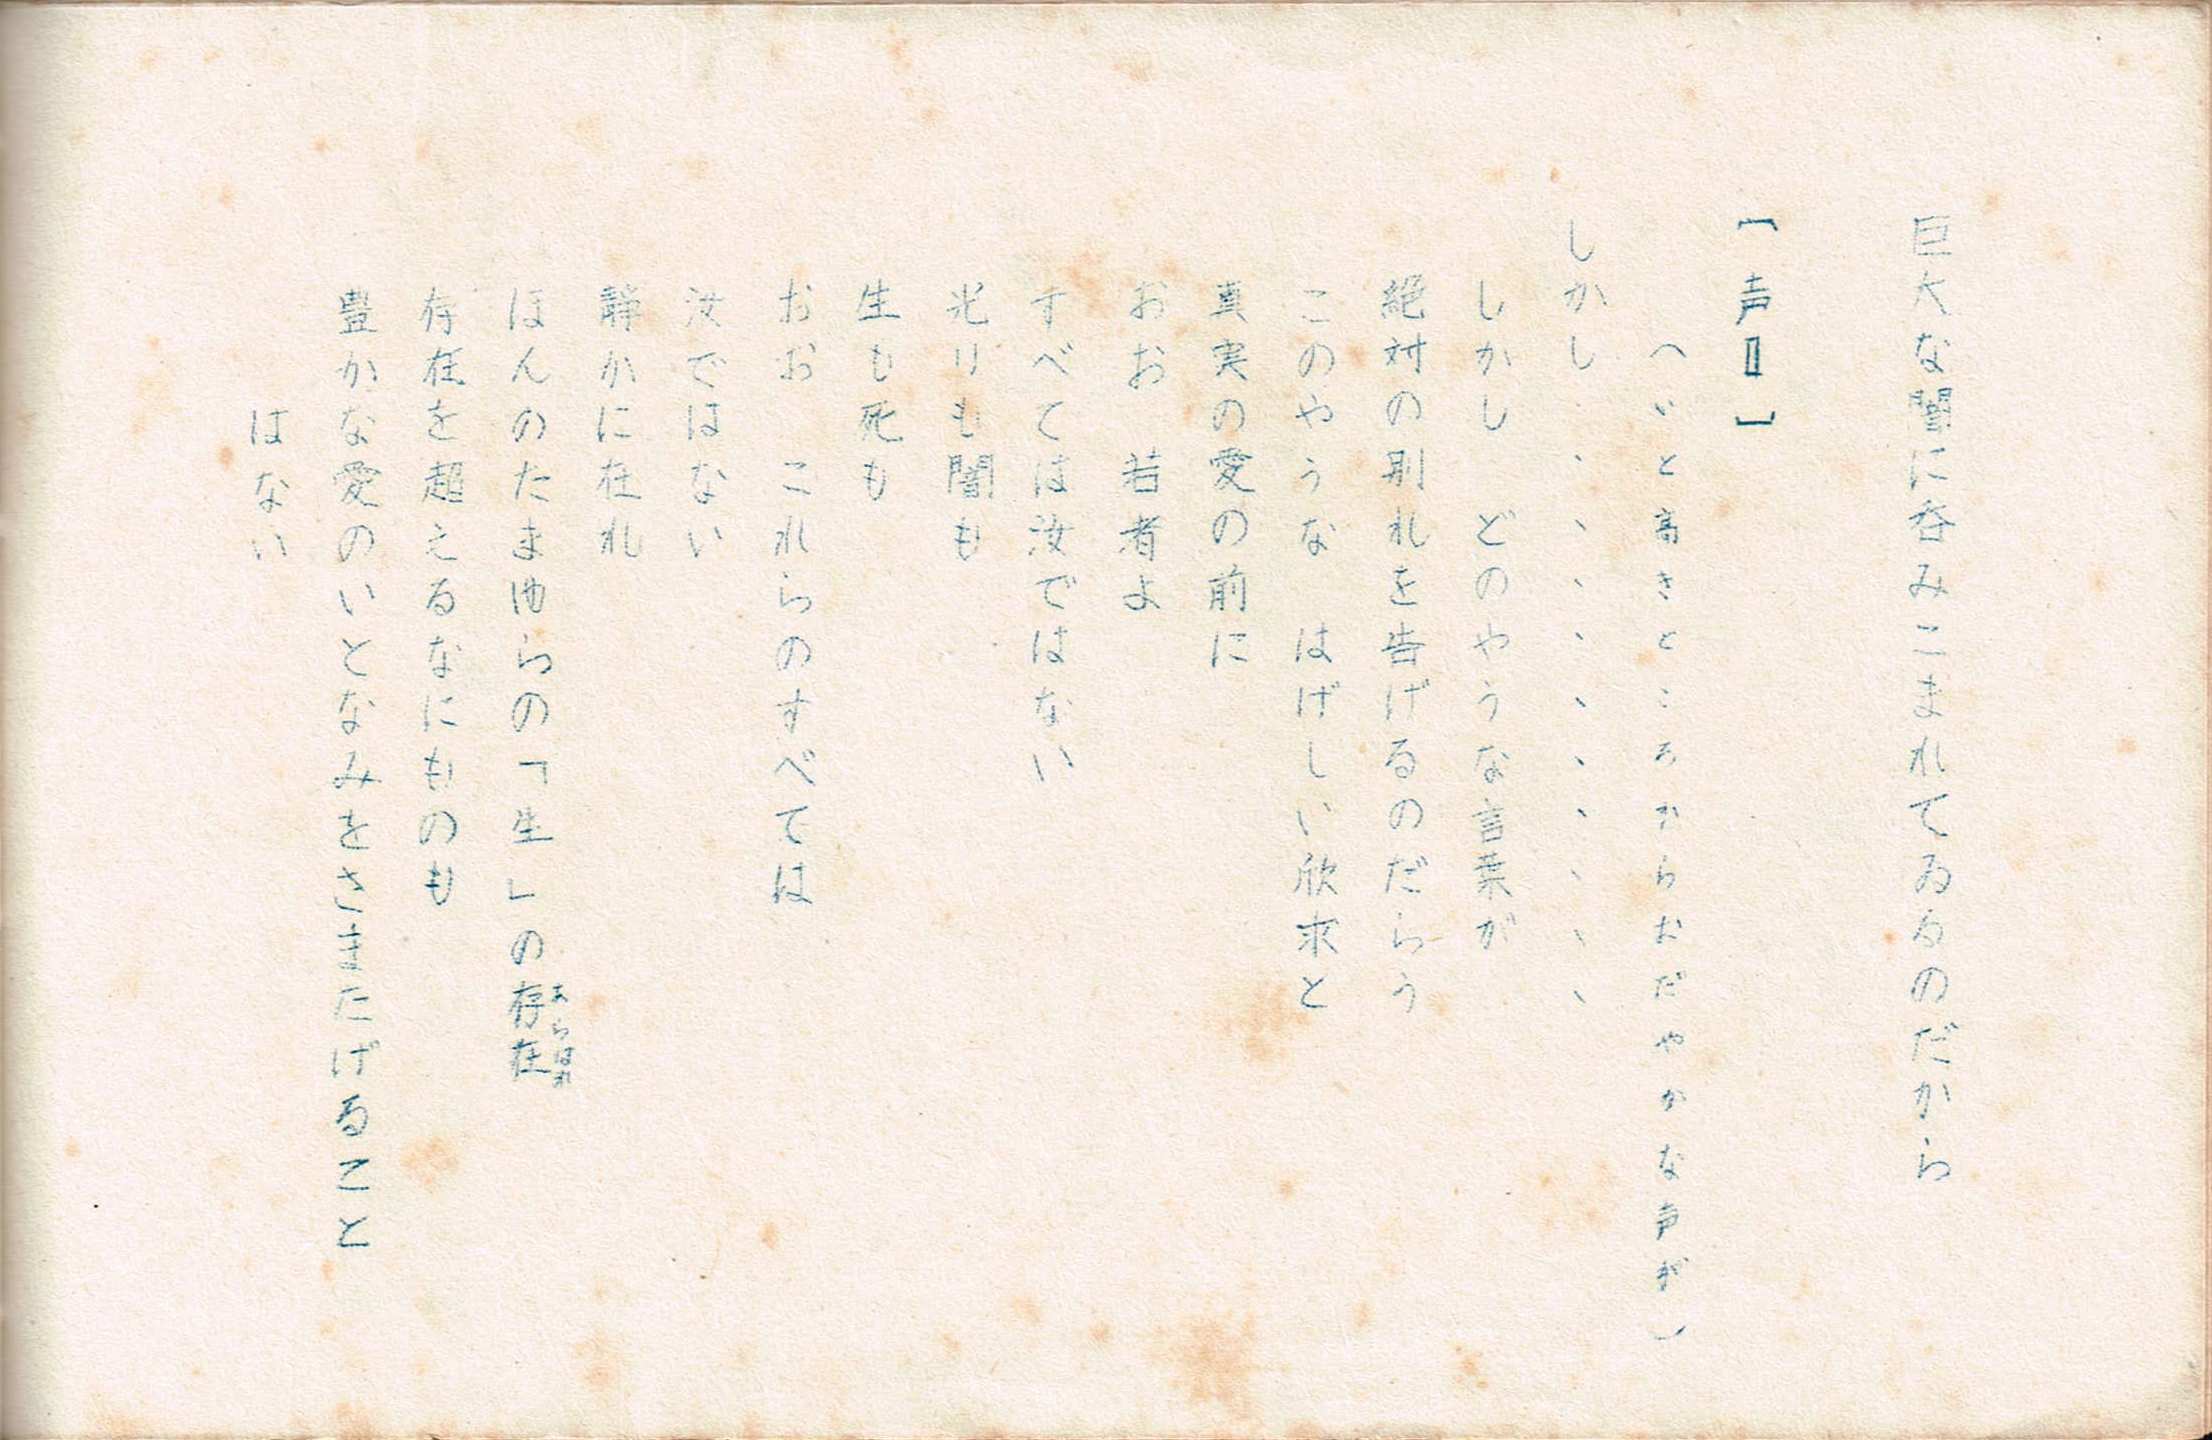 巨大な闇に呑みこまれてゐるのだから
[声Ⅱ]
(いと高きところからおだやかな声が)
しかし、、、、、、、、、、
しかし どのやうな言葉が
絶対の別れを告げるのだらう
このやうな はげしい欣求と
真実の愛の前に
おお 若者よ
すべては汝ではない
光りも闇も
生も死も
おお これらのすべては
汝ではない
静かに在れ
ほんのたまゆらの「生」の存在あらはれ
存在を超えるなにものも
豊かな愛のいとなみをさまたげること
はない